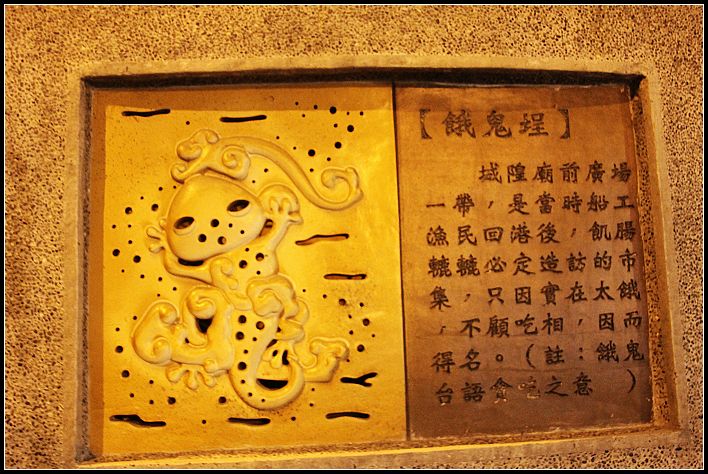 【餓鬼埕】
城隍廟前廣場
一帶，是當時船工
漁民回港後，飢腸
轆轆必定造訪的市
集，只因實在太餓
，不顧吃相，因而
得名。（註：餓鬼
台語貪吃之意）